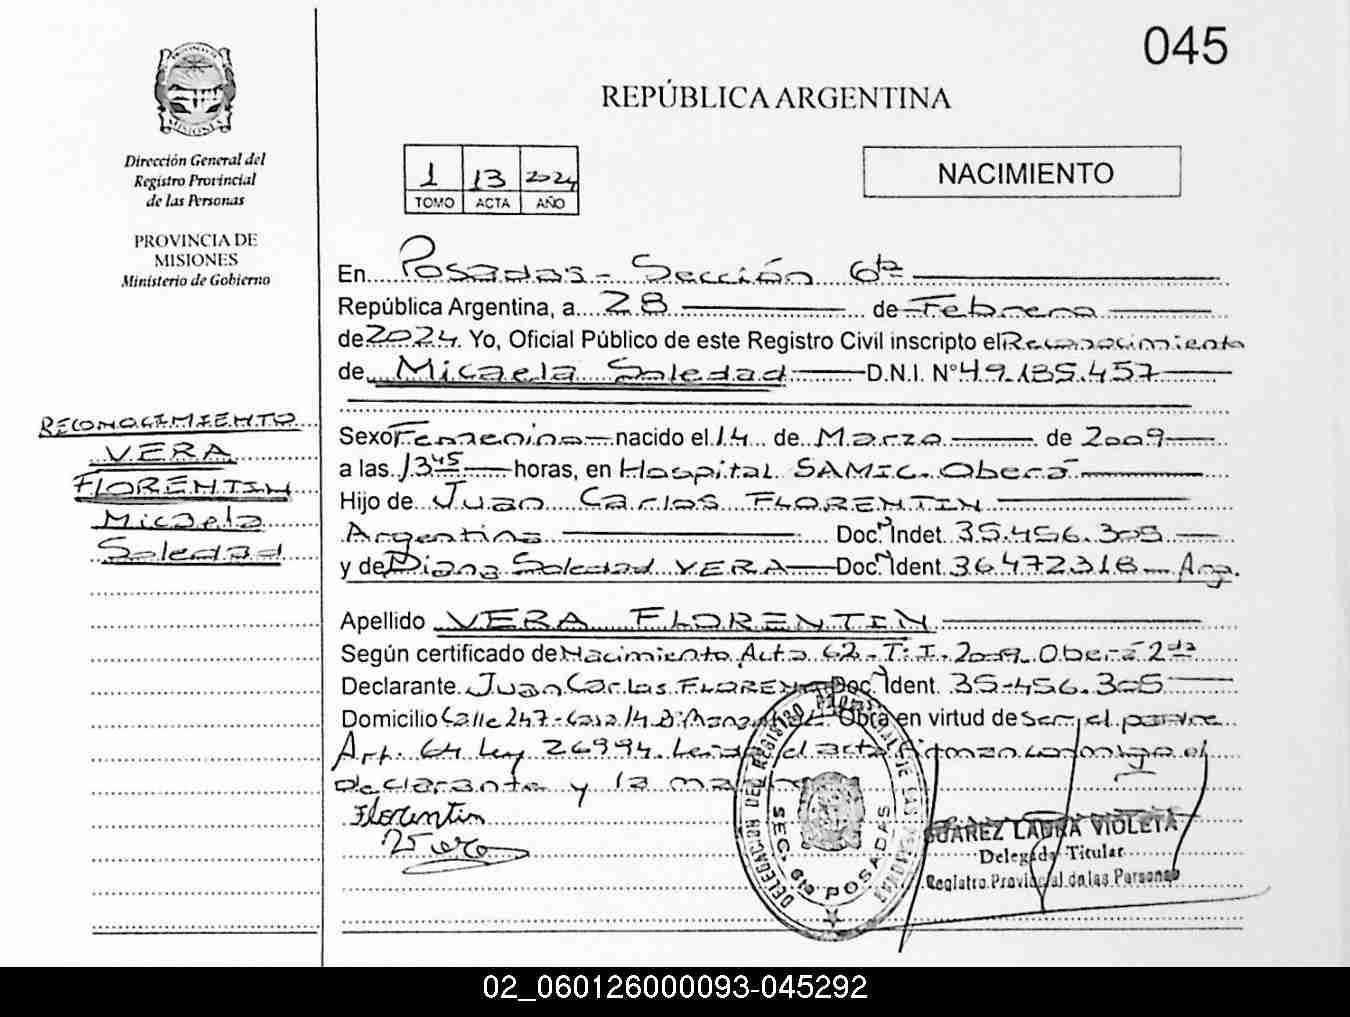 045
REPÚBLICA ARGENTINA
Dirección General del
Registro Provincial
de las Personas
PROVINCIA DE
MISIONES
Ministerio de Gobierno
1 13 2024
TOMO ACTA AÑO
NACIMIENTO
En Posadas - Sección 6ta
República Argentina, a 28 de Febrero
de 2024. Yo, Oficial Público de este Registro Civil inscripto el Reconocimiento
de Micaela Soledad D.N.I. Nº 49.135.457
RECONOCIMIENTO
VERA
FLORENTIN
Micaela
Soledad
Sexo Femenino nacido el 14 de Marzo de 2009
a las 13 45 horas, en Hospital SAMIC. Oberá
Hijo de Juan Carlos FLORENTIN
Argentina Doc. Indet. 35.456.305
y de Diana Soledad VERA Doc. Ident. 36.472318 - Arg.
Apellido VERA FLORENTIN
Según certificado de Nacimiento Acta 62-T:I-2009. Oberá 2da
Declarante Juan Carlos FLORENTIN Doc. Ident. 35.456.305
Domicilio Calle 247- Casa 14 Obra en virtud de ser el padre
Art. 64 Ley 26994. Leida el acta Firman conmigo el
declarante y la madre
Florentin
Vera
DELEGACION DEL REGISTRO PROVINCIAL DE LAS PERSONAS
SEC. 6ta POSADAS
SUAREZ LAURA VIOLETA
Delegada Titular
Registro Provincial de las Personas
02_060126000093-045292